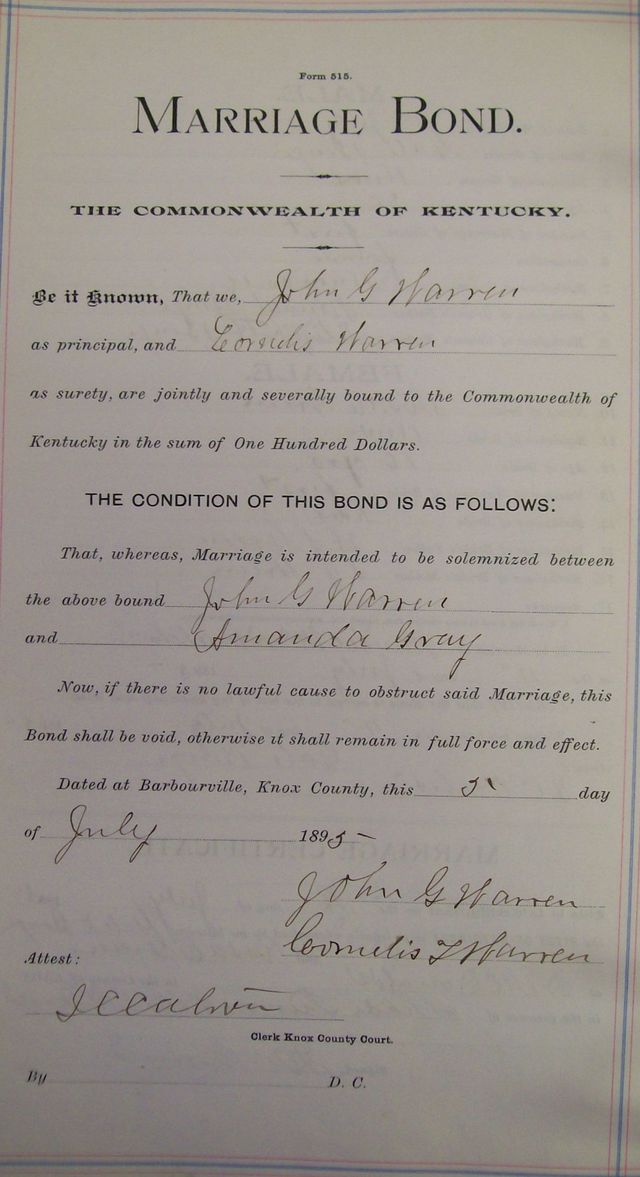 Form 515.
MARRIAGE BOND.
THE COMMONWEALTH OF KENTUCKY.
Be it Known, That we, John G Warren
as principal, and Cornelis Warren
as surety, are jointly and severally bound to the Commonwealth of
Kentucky in the sum of One Hundred Dollars.
THE CONDITION OF THIS BOND IS AS FOLLOWS:
That, whereas, Marriage is intended to be solemnized between
the above bound John G Warren
and Amanda Gray
Now, if there is no lawful cause to obstruct said Marriage, this
Bond shall be void, otherwise it shall remain in full force and effect.
Dated at Barbourville, Knox County, this day
of July 1895
John G Warren
Cornelis Warren
Attest:
Clerk Knox County Court.
By D. C.